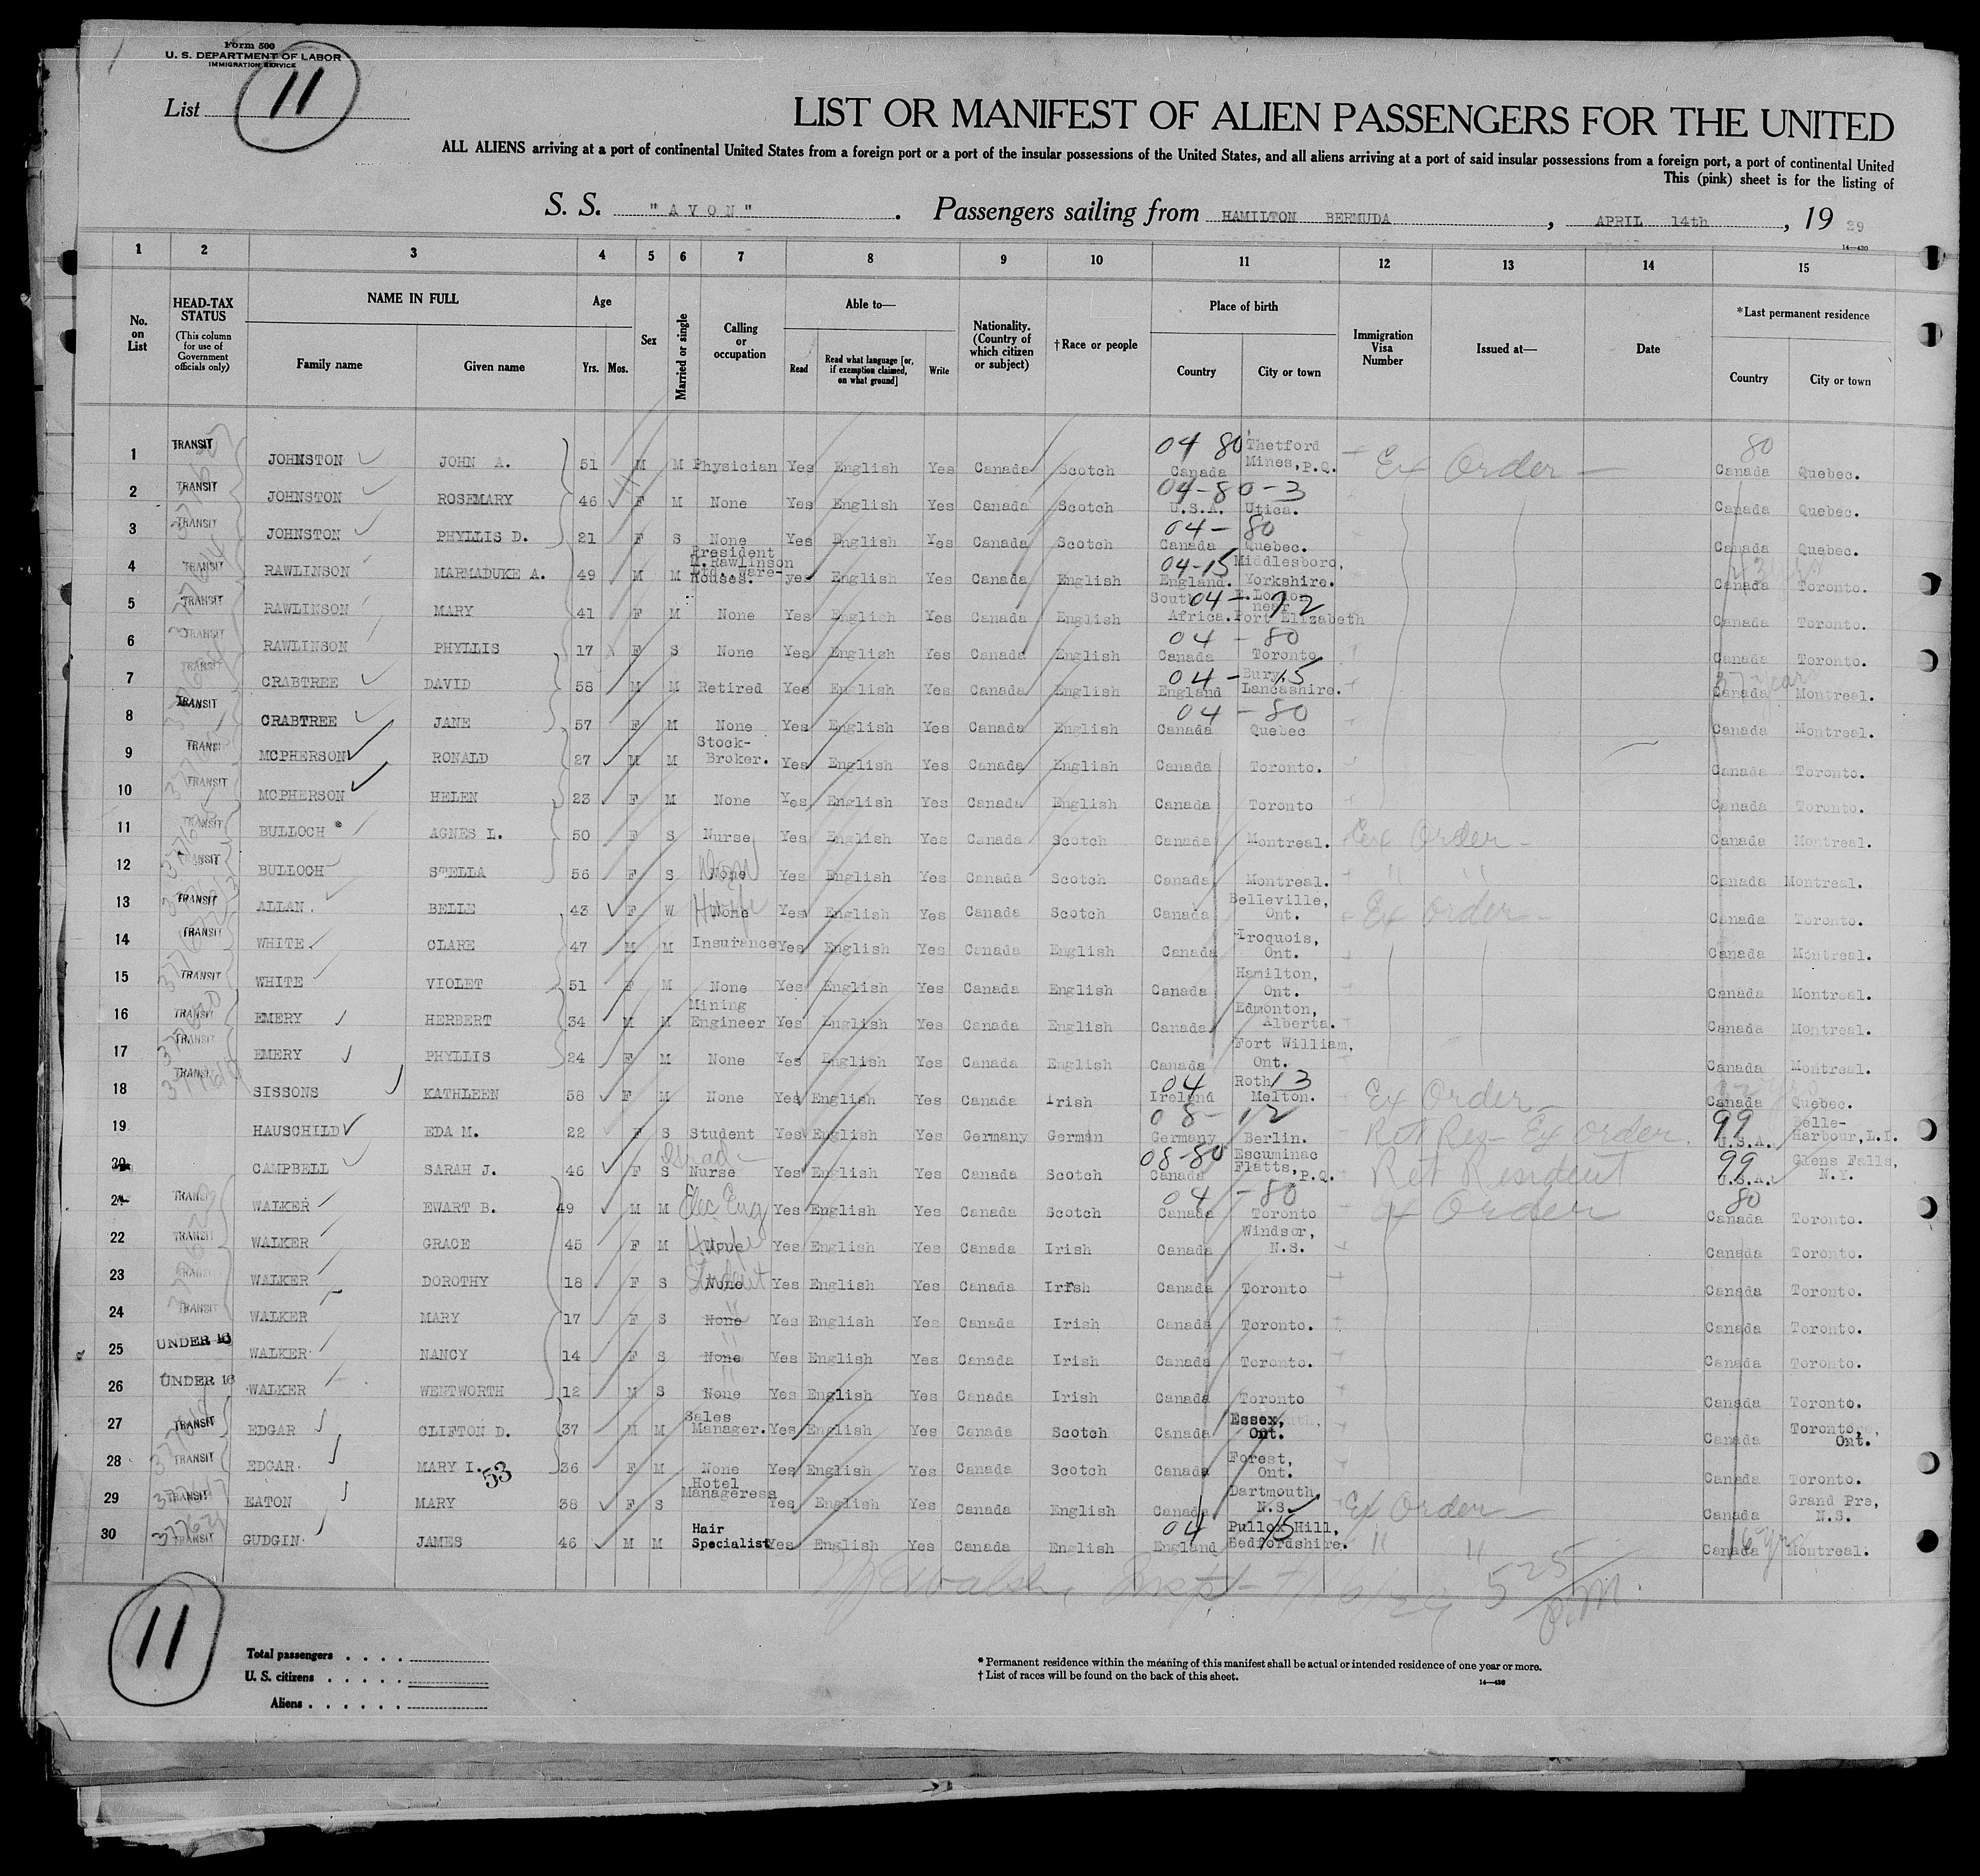 Form 500
U. S. DEPARTMENT OF LABOR
IMMIGRATION SERVICE
List 11
LIST OR MANIFEST OF ALIEN PASSENGERS FOR THE UNITED
ALL ALIENS arriving at a port of continental United States from a foreign port or a port of the insular possessions of the United States, and all aliens arriving at a port of said insular possessions from a foreign port, a port of continental United
This (pink) sheet is for the listing of
S. S. "AVON". Passengers sailing from HAMILTON BERMUDA, APRIL 14th, 19 29
14—430
1 2 3 4 5 6 7 8 9 10 11 12 13 14 15
No. on List
HEAD-TAX STATUS
(This column for use of Government officials only)
NAME IN FULL
Family name Given name
Age
Yrs. Mos.
Sex
Married or single
Calling or occupation
Able to—
Read
Read what language [or, if exemption claimed, on what ground]
Write
Nationality. (Country of which citizen or subject)
†Race or people
Place of birth
Country City or town
Immigration Visa Number
Issued at—
Date
*Last permanent residence
Country City or town
1 TRANSIT JOHNSTON JOHN A. 51 M M Physician Yes English Yes Canada Scotch 04 80 Canada Thetford Mines, P.Q. Ex Order 80 Canada Quebec.
2 TRANSIT JOHNSTON ROSEMARY 46 F M None Yes English Yes Canada Scotch 04-80-3 U.S.A. Utica. Canada Quebec.
3 TRANSIT JOHNSTON PHYLLIS D. 21 F S None Yes English Yes Canada Scotch 04-80 Canada Quebec. Canada Quebec.
4 TRANSIT RAWLINSON MARMADUKE A. 49 M M President M. Rawlinson Ltd. Ware-Houses. yes English Yes Canada English 04-15 England. Middlesboro, Yorkshire. Canada Toronto.
5 TRANSIT RAWLINSON MARY 41 F M None Yes English Yes Canada English 04-72 South Africa. E. London near Port Elizabeth Canada Toronto.
6 TRANSIT RAWLINSON PHYLLIS 17 F S None Yes English Yes Canada English 04-80 Canada Toronto Canada Toronto.
7 TRANSIT CRABTREE DAVID 58 M M Retired Yes English Yes Canada English 04-15 England Bury, Lancashire. Canada Montreal.
8 TRANSIT CRABTREE JANE 57 F M None Yes English Yes Canada English 04-80 Canada Quebec Canada Montreal.
9 TRANSI MCPHERSON RONALD 27 M M Stock-Broker. Yes English Yes Canada English Canada Toronto. Canada Toronto.
10 TRANSIT MCPHERSON HELEN 23 F M None Yes English Yes Canada English Canada Toronto Canada Toronto.
11 TRANSIT BULLOCH AGNES L. 50 F S Nurse Yes English Yes Canada Scotch Canada Montreal. Ex Order Canada Montreal.
12 TRANSIT BULLOCH STELLA 56 F S None Yes English Yes Canada Scotch Canada Montreal. " " Canada Montreal.
13 TRANSIT ALLAN. BELLE 43 F W None Yes English Yes Canada Scotch Canada Belleville, Ont. Ex Order Canada Toronto.
14 TRANSIT WHITE CLARE 47 M M Insurance Yes English Yes Canada English Canada Iroquois, Ont. Canada Montreal.
15 TRANSIT WHITE VIOLET 51 F M None Yes English Yes Canada English Canada Hamilton, Ont. Canada Montreal.
16 TRANSIT EMERY HERBERT 34 M M Mining Engineer Yes English Yes Canada English Canada Edmonton, Alberta. Canada Montreal.
17 TRANSIT EMERY PHYLLIS 24 F M None Yes English Yes Canada English Canada Fort William, Ont. Canada Montreal.
18 TRANSIT SISSONS KATHLEEN 58 F M None Yes English Yes Canada Irish 04 13 Ireland Roth Melton. Ex Order Canada Quebec.
19 HAUSCHILD EDA M. 22 F S Student Yes English Yes Germany German 08-12 Germany Berlin. Ret Res Ex Order. 99 U.S.A. Belle-Harbour, L.I.
20 CAMPBELL SARAH J. 46 F S Grad Nurse Yes English Yes Canada Scotch 08-80 Canada Escuminac Flatts, P.Q. Ret Resident 99 U.S.A. Glens Falls, N.Y.
21 TRANSIT WALKER EWART B. 49 M M Elec Eng Yes English Yes Canada Scotch 04-80 Canada Toronto Ex Order 80 Canada Toronto.
22 TRANSIT WALKER GRACE 45 F M None Yes English Yes Canada Irish Canada Windsor, N.S. Canada Toronto.
23 TRANSIT WALKER DOROTHY 18 F S None Student Yes English Yes Canada Irish Canada Toronto Canada Toronto.
24 TRANSIT WALKER MARY 17 F S None " Yes English Yes Canada Irish Canada Toronto. Canada Toronto.
25 UNDER 16 WALKER NANCY 14 F S None " Yes English Yes Canada Irish Canada Toronto. Canada Toronto.
26 UNDER 16 WALKER WENTWORTH 12 M S None " Yes English Yes Canada Irish Canada Toronto Canada Toronto.
27 TRANSIT EDGAR CLIFTON D. 37 M M Sales Manager. Yes English Yes Canada Scotch Canada Essex, Ont. Canada Toronto, Ont.
28 TRANSIT EDGAR MARY I. 53 36 F M None Yes English Yes Canada Scotch Canada Forest, Ont. Canada Toronto.
29 TRANSIT EATON MARY 38 F S Hotel Manageress Yes English Yes Canada English Canada Dartmouth, N.S. Ex Order Canada Grand Pre, N.S.
30 TRANSIT GUDGIN JAMES 46 M M Hair Specialist Yes English Yes Canada English 04 15 England Pullox Hill, Bedfordshire. " " Canada 16 yrs Montreal.
5 25 P.M.
11
Total passengers . . . .
U. S. citizens . . . . .
Aliens . . . . . .
* Permanent residence within the meaning of this manifest shall be actual or intended residence of one year or more.
† List of races will be found on the back of this sheet.
14—430